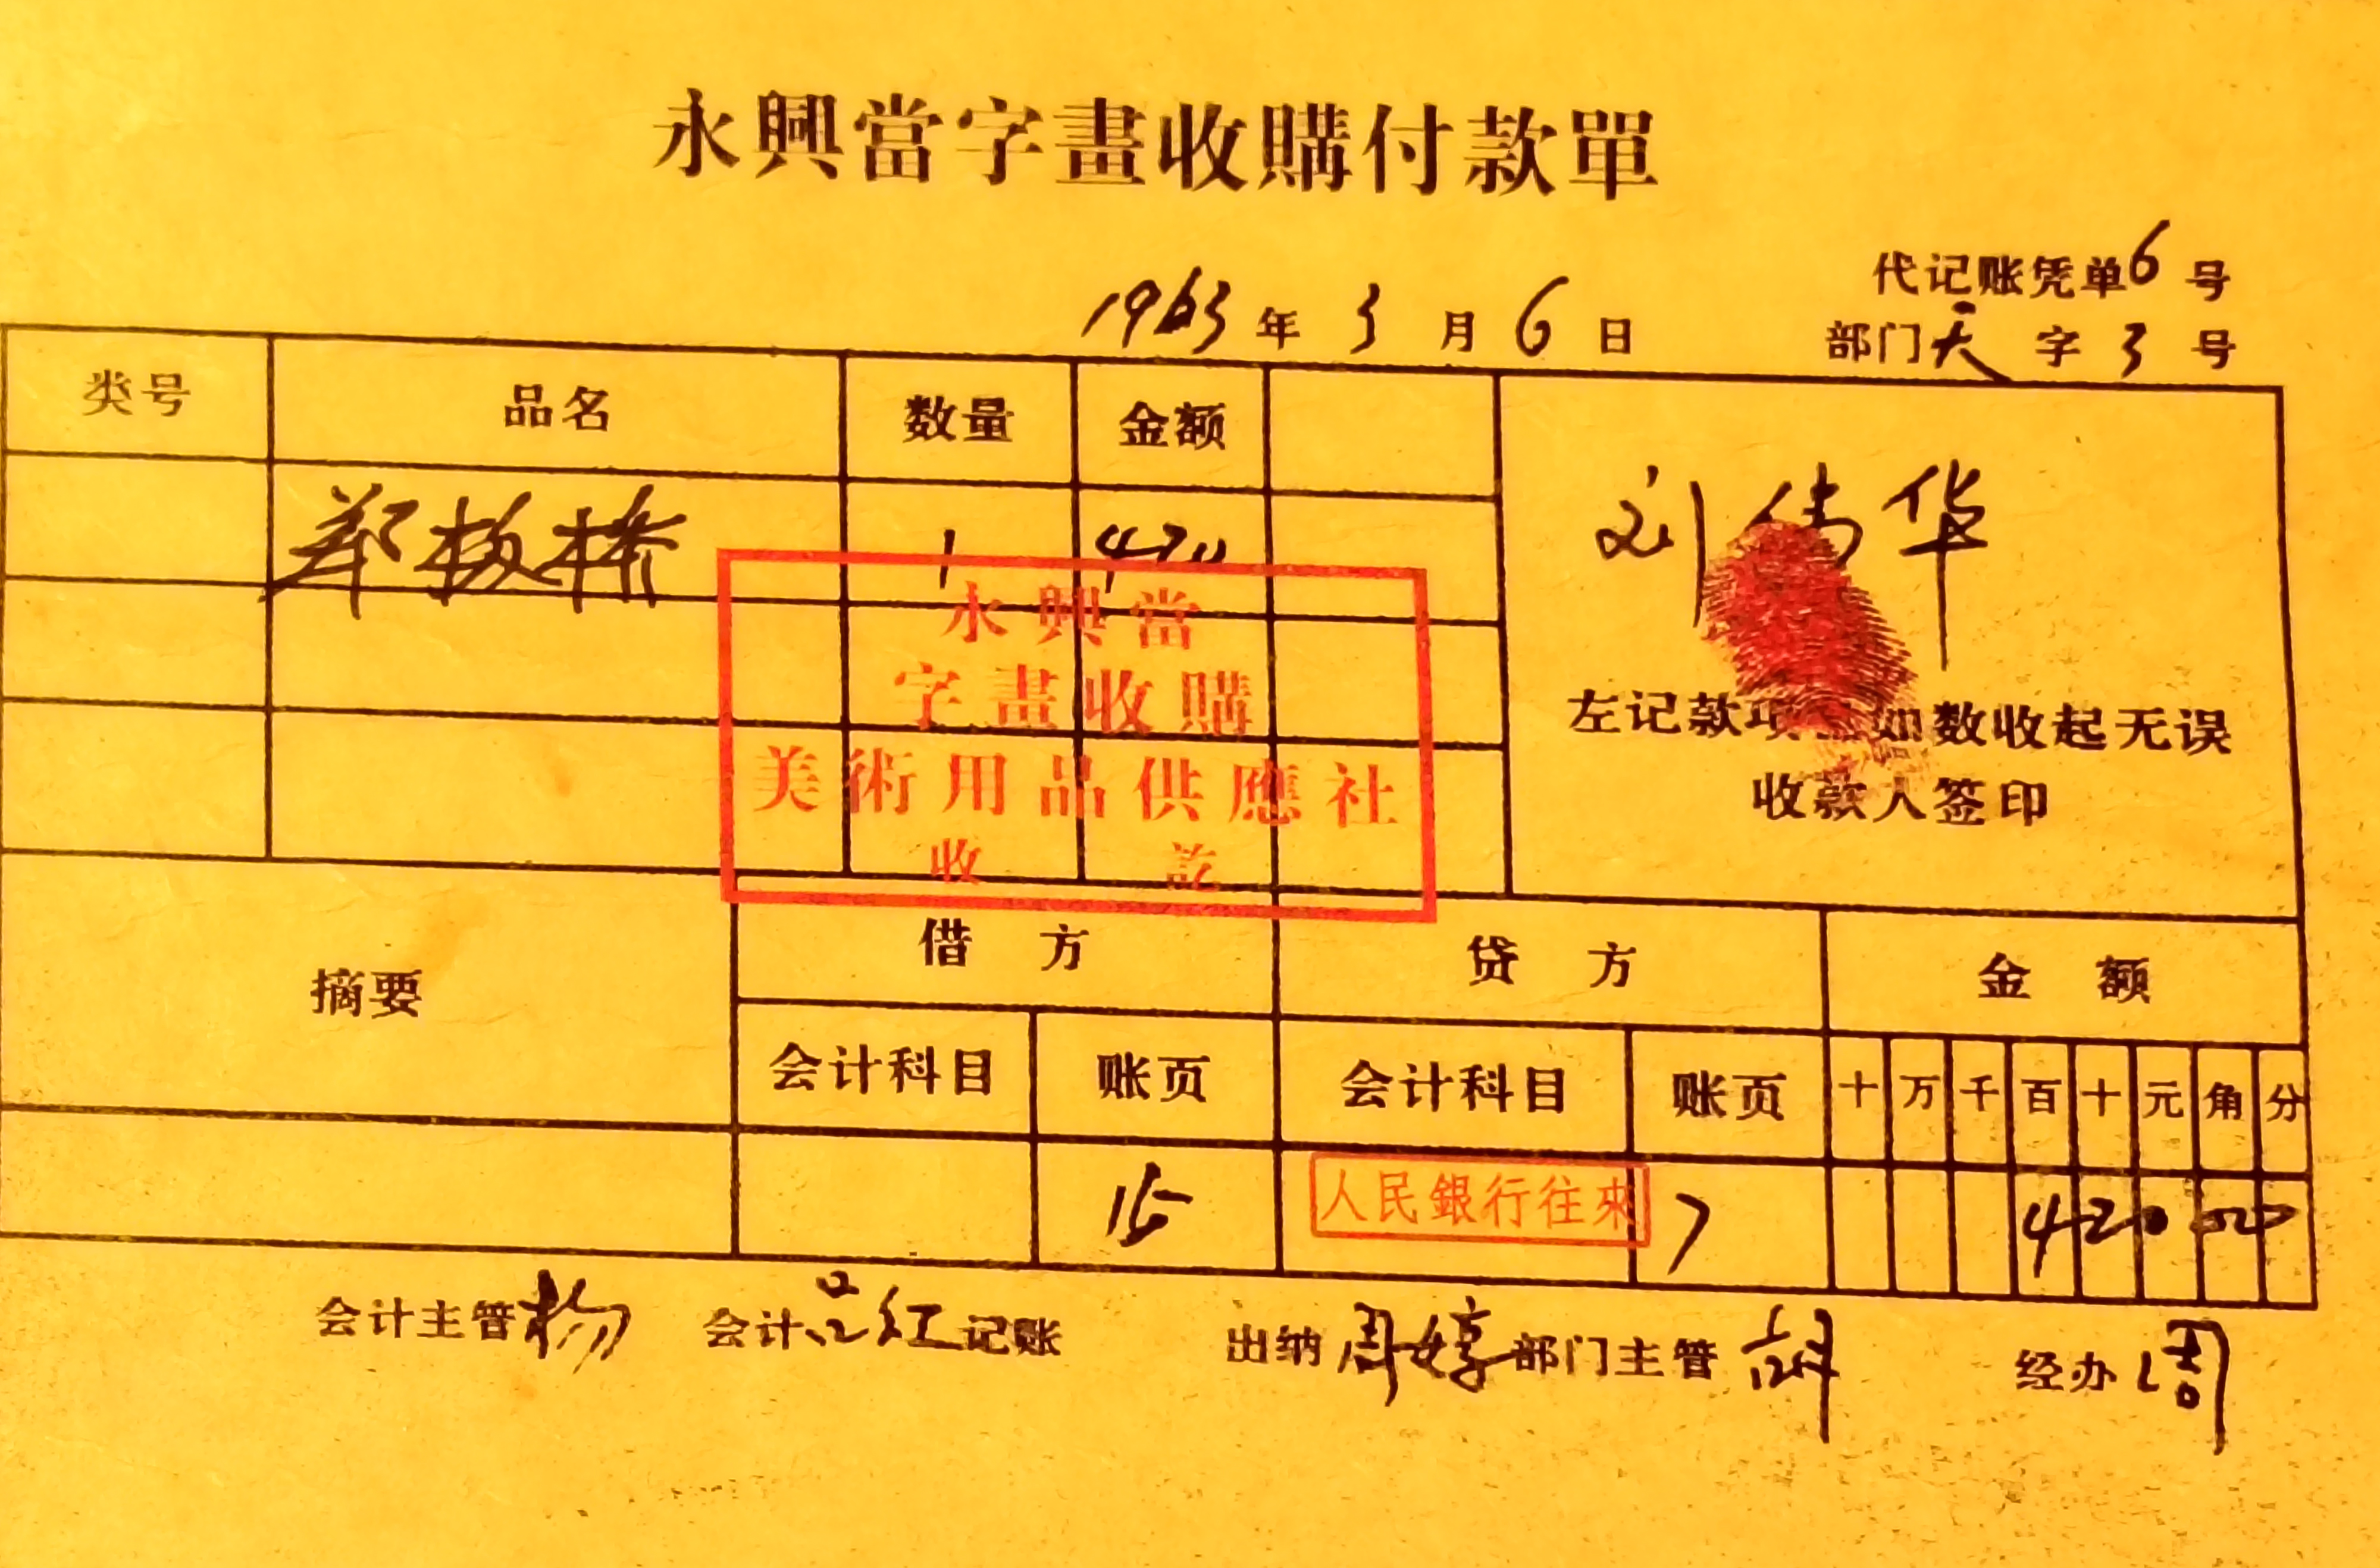 永興當字畫收購付款單
代记账凭单6号
1963年3月6日
部门天字3号
类号 品名 数量 金额
郑板桥 1 420
刘伟华
永興當
字畫收購
美術用品供應社
收訖
左记款项 如数收起无误
收款人签印
摘要 借方 贷方 金额
会计科目 账页 会计科目 账页 十 万 千 百 十 元 角 分
15 人民銀行往來 7 42000
会计主管杨 会计 红记账 出纳周婷 部门主管胡 经办周